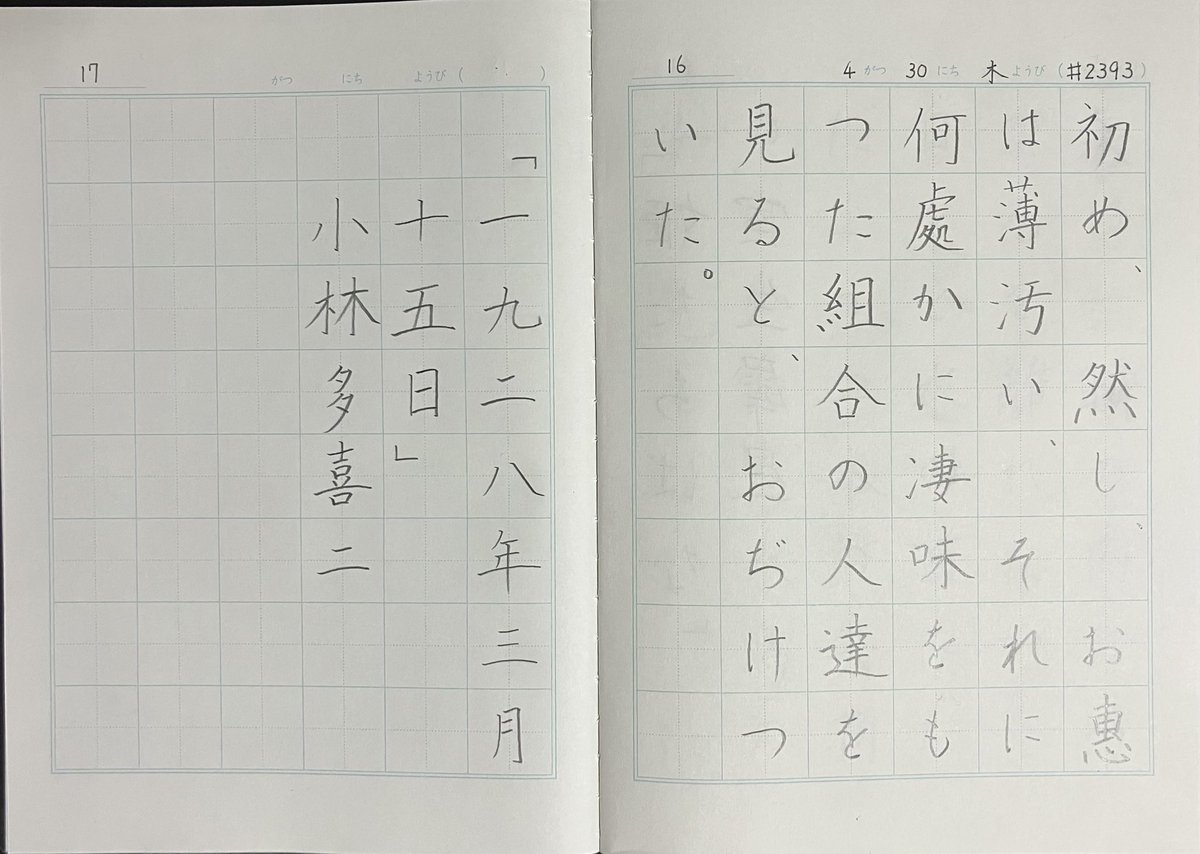 16 4がつ 30にち 木ようび(#2393)
初め、然し、お惠
は薄汚い、それに
何處かに凄味をも
つた組合の人達を
見ると、おぢけつ
いた。
17 がつ にち ようび( )
「一九二八年三月
十五日」
小林多喜二